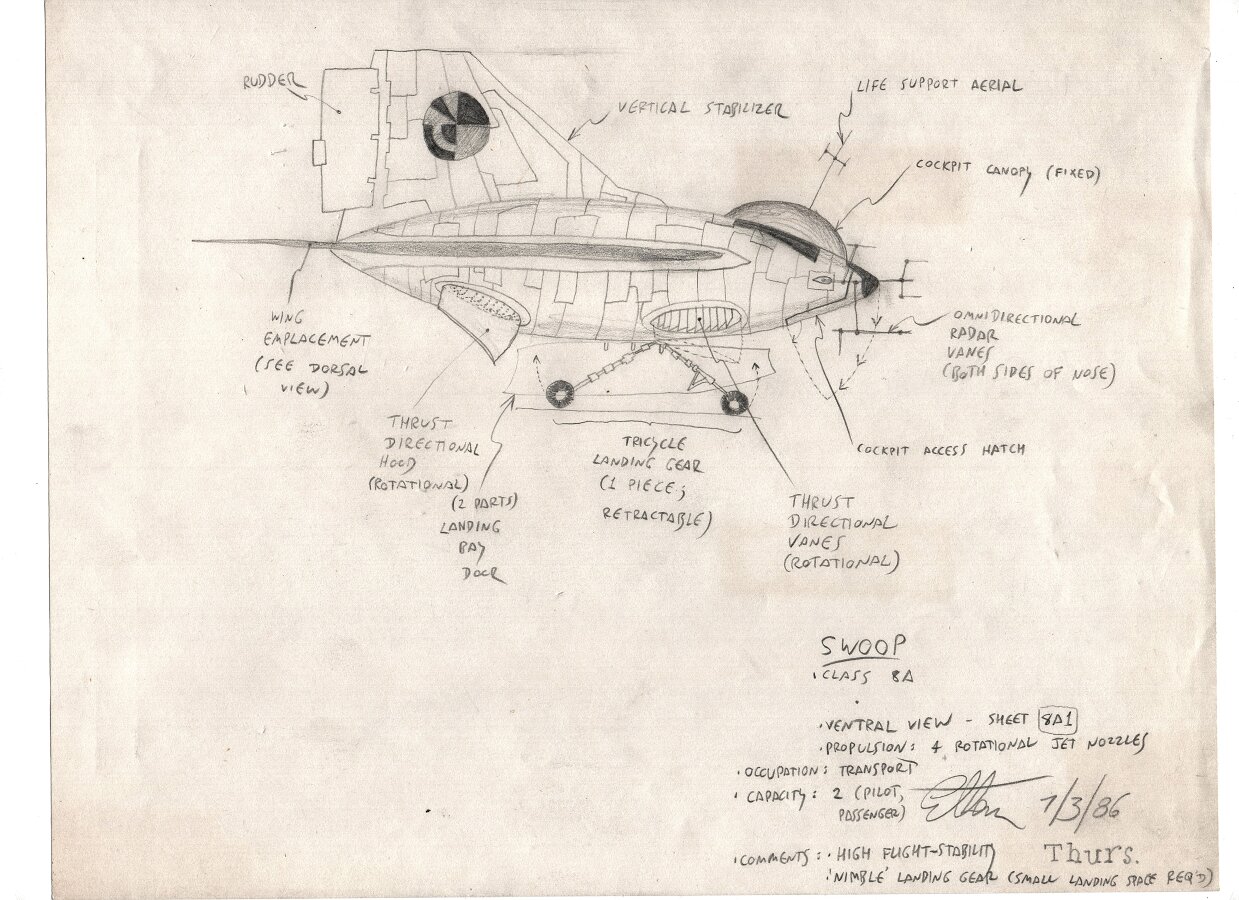 RUDDER
VERTICAL STABILIZER
LIFE SUPPORT AERIAL
COCKPIT CANOPY (FIXED)
WING
EMPLACEMENT
(SEE DORSAL
VIEW)
OMNIDIRECTIONAL
RADAR
VANES
(BOTH SIDES OF NOSE)
THRUST
DIRECTIONAL
HOOD
(ROTATIONAL)
(2 PARTS)
LANDING
BAY
DOOR
TRICYCLE
LANDING GEAR
(1 PIECE;
RETRACTABLE)
COCKPIT ACCESS HATCH
THRUST
DIRECTIONAL
VANES
(ROTATIONAL)
SWOOP
• CLASS 8A
• VENTRAL VIEW - SHEET 8A1
• PROPULSION: 4 ROTATIONAL JET NOZZLES
• OCCUPATION: TRANSPORT
• CAPACITY: 2 (PILOT,
PASSENGER)
7/3/86
Thurs.
• COMMENTS: • HIGH FLIGHT-STABILITY
• 'NIMBLE' LANDING GEAR (SMALL LANDING SPACE REQ'D)